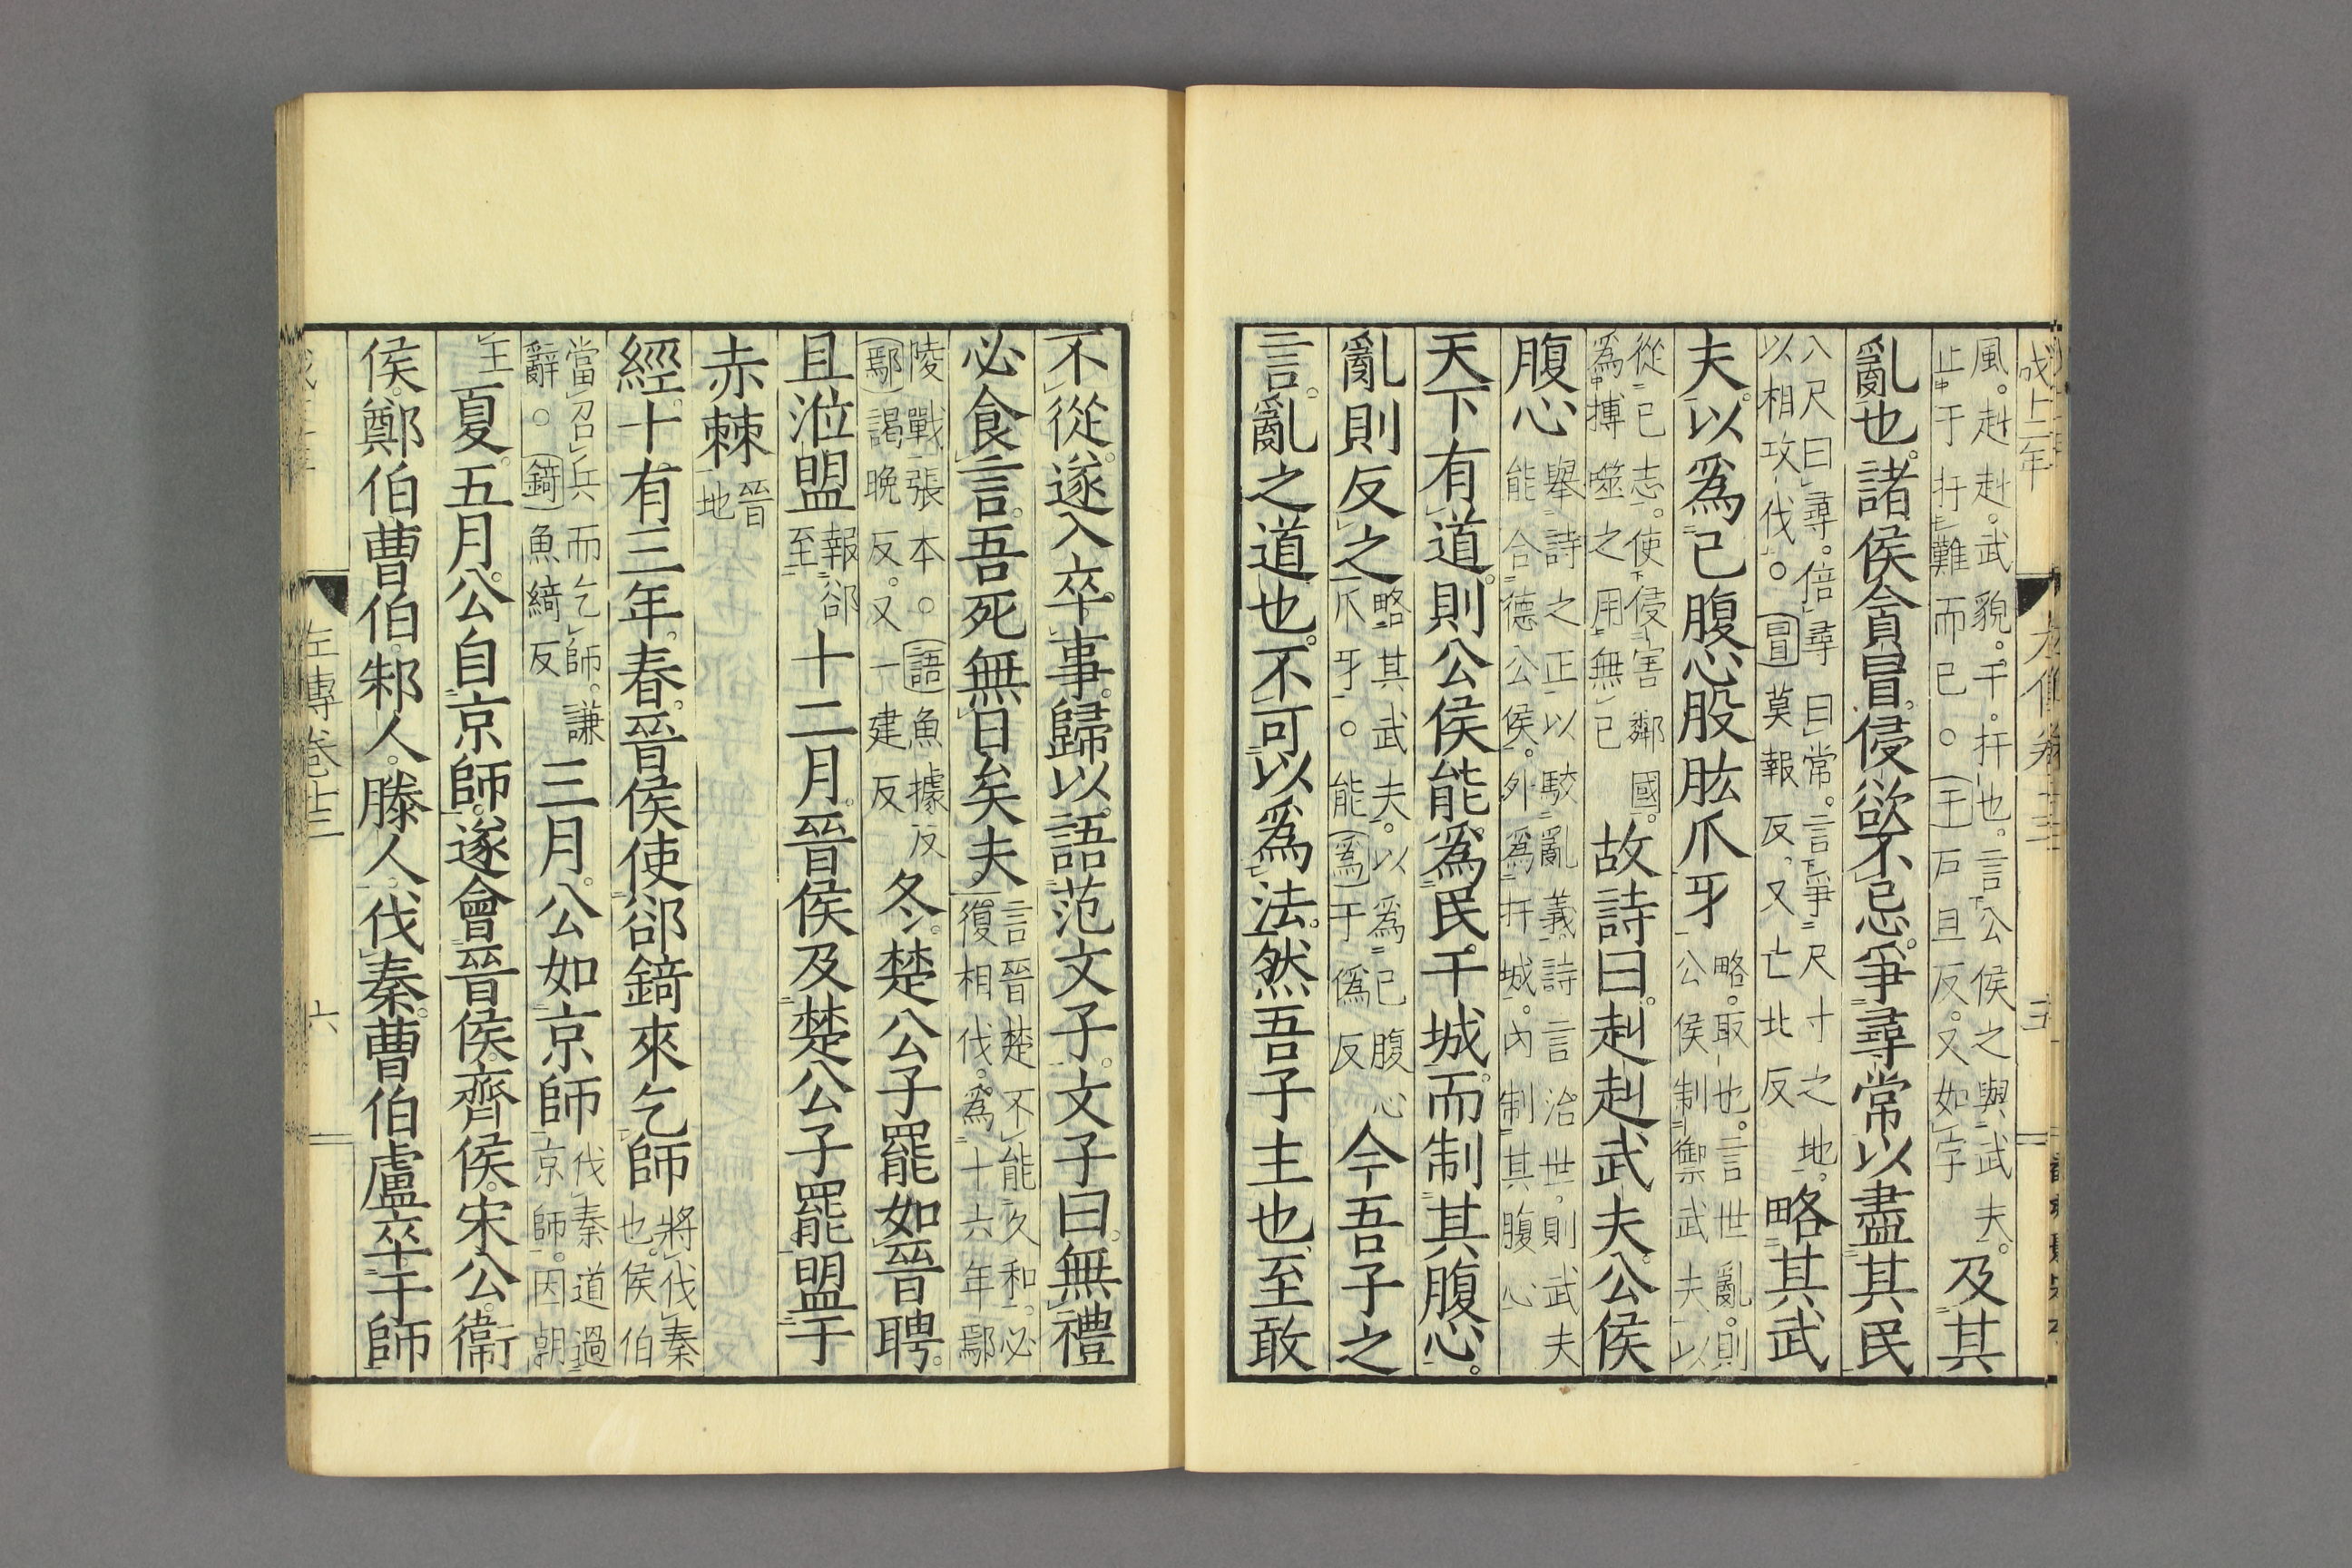 成十二年 左傳卷十三 五
風。赳赳。武貌。干。扞也。言公侯之與武夫。止于扞難而已。○干戸旦反。又如字及其
亂也。諸侯貪冒。侵欲不忌。爭尋常以盡其民
八尺曰尋。倍尋曰常。言爭尺寸之地。以相攻伐。○冒莫報反。又亡北反略其武
夫。以爲己腹心股肱爪牙略。取也。言世亂。則公侯制禦武夫以
從己志。使侵害鄰國。爲搏噬之用無已故詩曰。赳赳武夫。公侯
腹心舉詩之正以駮亂義。詩言治世。則武夫能合德公侯。外爲扞城。內制其腹心
天下有道。則公侯能爲民干城。而制其腹心。
亂則反之略其武夫。以爲己腹心爪牙。○能爲于僞反今吾子之
言。亂之道也。不可以爲法。然吾子主也。至敢
不從。遂入卒事。歸以語范文子。文子曰。無禮
必食言。吾死無日矣夫言晉楚不能久和。必復相伐。爲十六年鄢
陵戰張本。○語魚據反鄢謁晚反。又一建反冬。楚公子罷如晉聘。
且涖盟報郤至十二月。晉侯及楚公子罷盟于
赤棘晉地
經。十有三年。春。晉侯使郤錡來乞師將伐秦也。侯伯
當召兵而乞師。謙辭。○錡魚綺反三月。公如京師伐秦道過京師。因朝
王夏。五月。公自京師。遂會晉侯。齊侯。宋公。衞
侯。鄭伯曹伯。邾人。滕人。伐秦。曹伯盧卒于師
左傳卷十三 六